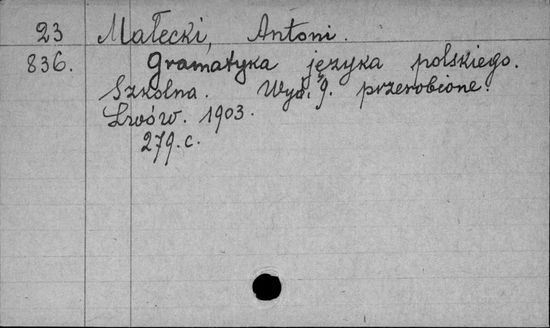 23 Małecki, Antoni.
836. Gramatyka języka polskiego.
Szkolna. Wyd. 9. przerobione.
Lwów. 1903.
279. c.